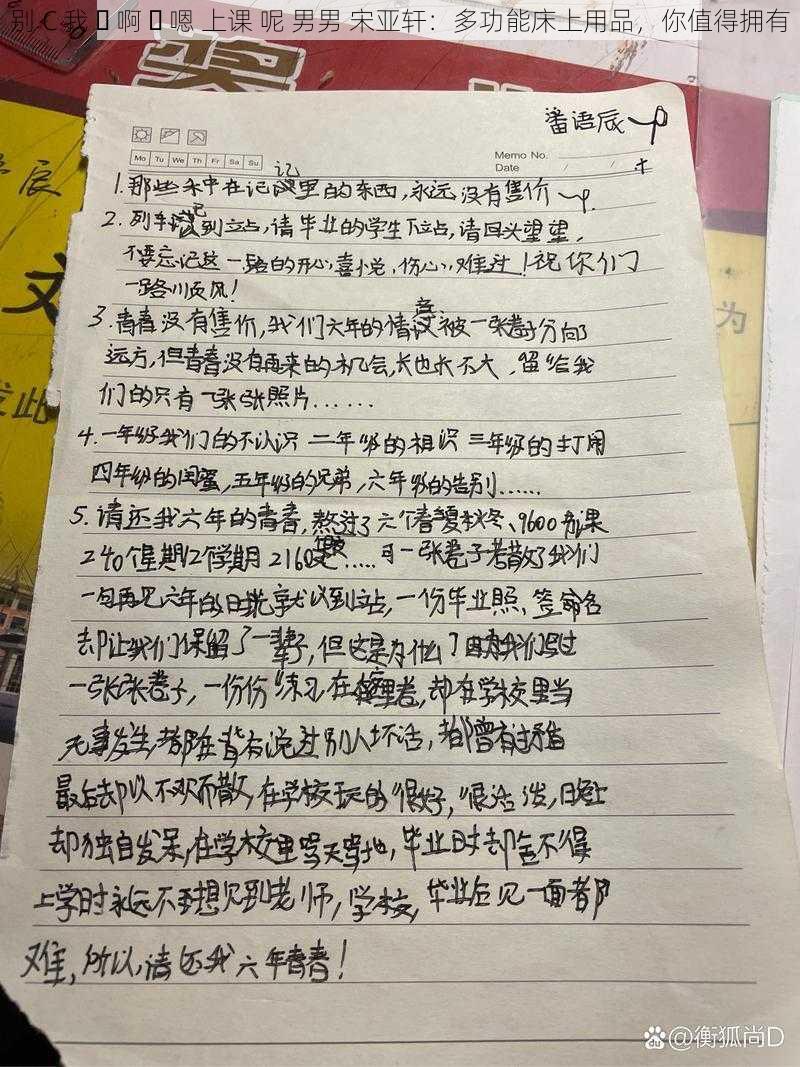 别 C 我 啊 嗯 上课 呢 男男 宋亚轩：多功能床上用品，你值得拥有
奖
辰
文
发此
为
番语辰
Mo Tu We Th Fr Sa Su
Memo No.
Date / /
记
1.那些年中在记里的东西,永远没有售价
2.列车到立占,请毕业的学生下立占,请回头望望,
不要忘记这一路的开心,喜悦,伤心,难过!祝你们
一路川页风!
3.青春没有售价,我们六年的情被一张卷子分向
远方,但青春没有再来的机会,长也长不大,留给我
们的只有一张张照片......
4.一年级我们的不认识 二年级的相识 三年级的打闹
四年级的闺蜜,五年级的兄弟,六年级的告别......
5.请还我六年的青春,熬过了六个春夏秋冬、9600节课
240个星期12个学期2160.....可一张卷子若散了我们
一句再见六年的日光就以到立占,一份毕业照、签命名
却让我们保留了一辈子,但这是为什么?因为我们写过
一张张卷子,一份份练习,在里卷,却在学校里当
无事发生,都在背有说过别人坏话,都曾有过矛盾
最后却以不欢而散,在学校玩的很好,很活泼,日晚上
却独自发呆,在学校里骂天骂地,毕业日寸却舍不得
上学时永远不再想见到老师,学校,毕业后见一面都
难,所以,请还我六年青春!
Bai du @衡狐尚D